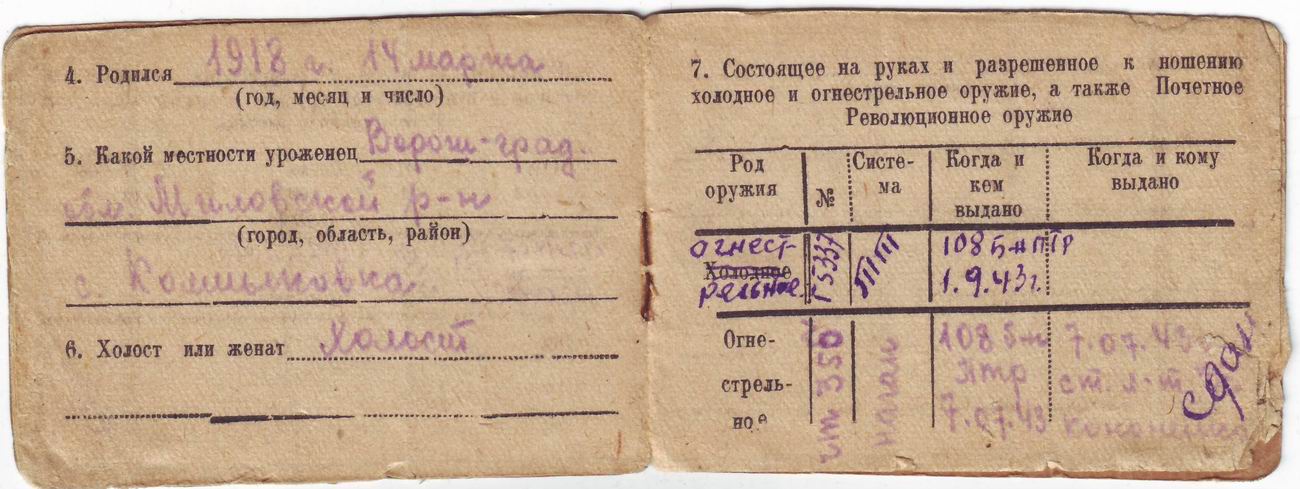 4. Родился 1918 г. 14 марта
(год, месяц и число)
5. Какой местности уроженец Ворош-град.
обл. Миловской р-н
(город, область, район)
с.
6. Холост или женат Холост
7. Состоящее на руках и разрешенное к ношению
холодное и огнестрельное оружие, а также Почетное
Революционное оружие
Род оружия № Систе-ма Когда и кем выдано Когда и кому выдано
огнест- ТТ 108 Б-н ПТР
Холодное
рельное 1.9.43г.
Огне- 108 б-н 7.07.43
стрель- наган птр ст. л-т
ное 7.07.43
сдан